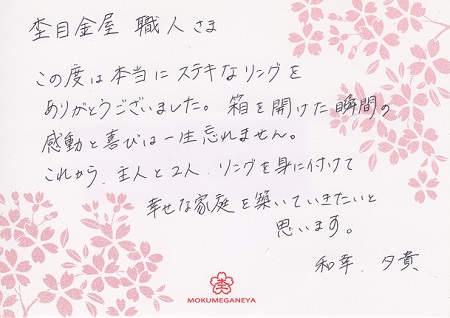 杢目金屋 職人さま
この度は本当にステキなリングを
ありがとうございました。箱を開けた瞬間の
感動と喜びは一生忘れません。
これから、主人と2人、リングを身に付けて
幸せな家庭を築いていきたいと
思います。
和幸、夕貴
MOKUMEGANEYA